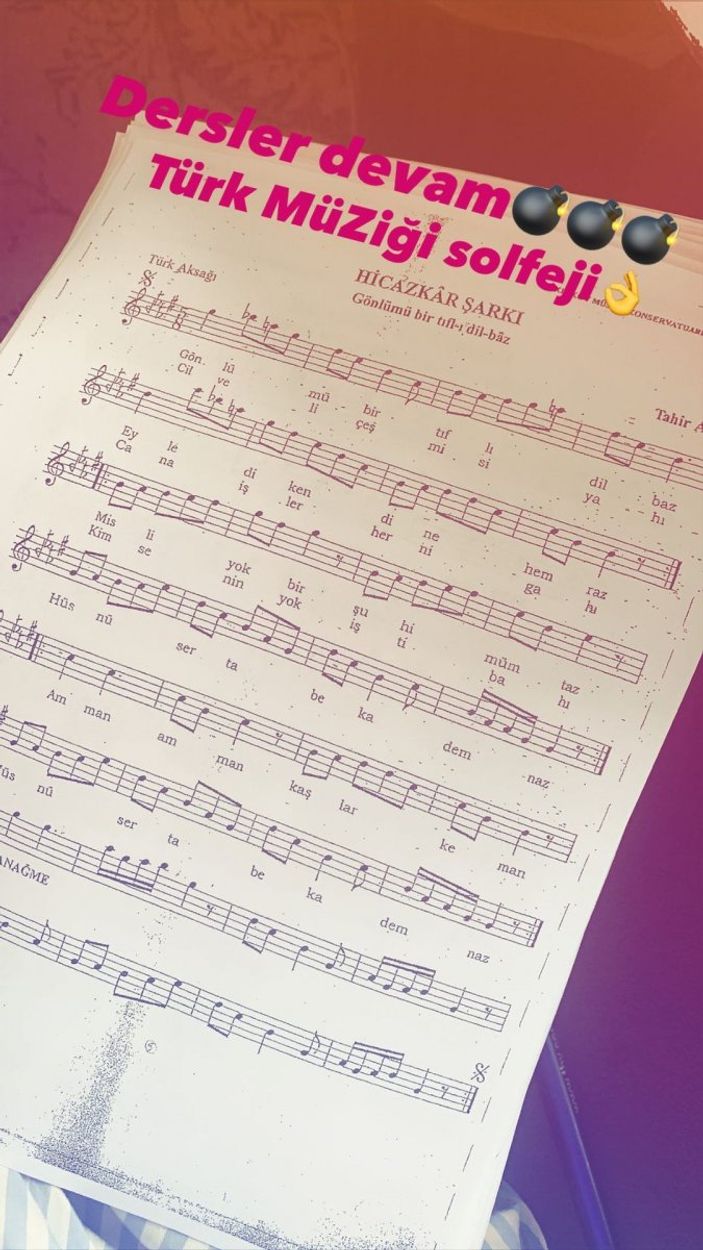 Dersler devam💣💣💣
Türk MüZiği solfeji👌
Türk Aksağı
HİCAZKÂR ŞARKI
Gönlümü bir tıfl-ı dil-bâz
KONSERVATUARI
Tahir A
Gön lü mü bir tıf lı dil baz
Cil ve li çeş mi si ya hı
Ey le di ken di ne hem raz
Ca na iş ler her ni ga hı
Mis li yok bir şu hi müm taz
Kim se nin yok iş ti ba hı
Hüs nü ser ta be ka dem naz
Am man am man kaş lar ke man
Hüs nü ser ta be ka dem naz
ANAĞME
5